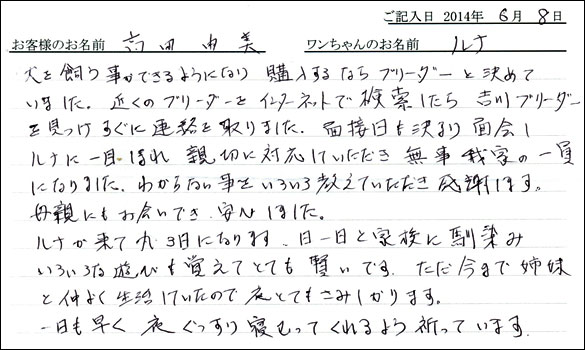 ご記入日 2014年 6月 8日
お客様のお名前 高田由美 ワンちゃんのお名前 ルナ
犬を飼う事ができるようになり 購入するならブリーダーと決めて
いました。近くのブリーダーをインターネットで検索したら 吉川ブリーダー
を見つけすぐに連絡を取りました。面接日も決まり面会し
ルナに一目ぼれ 親切に対応していただき 無事我家の一員
になりました。わからない事をいろいろ教えていただき感謝します。
母親にもお会いでき、安心しました。
ルナが来て丸3日になります。日一日と家族に馴染み
いろいろな遊びも覚えてとても賢いです。ただ今まで姉妹
と仲よく生活していたので夜とてもさみしがります。
一日も早く 夜ぐっすり寝むってくれるよう祈っています。